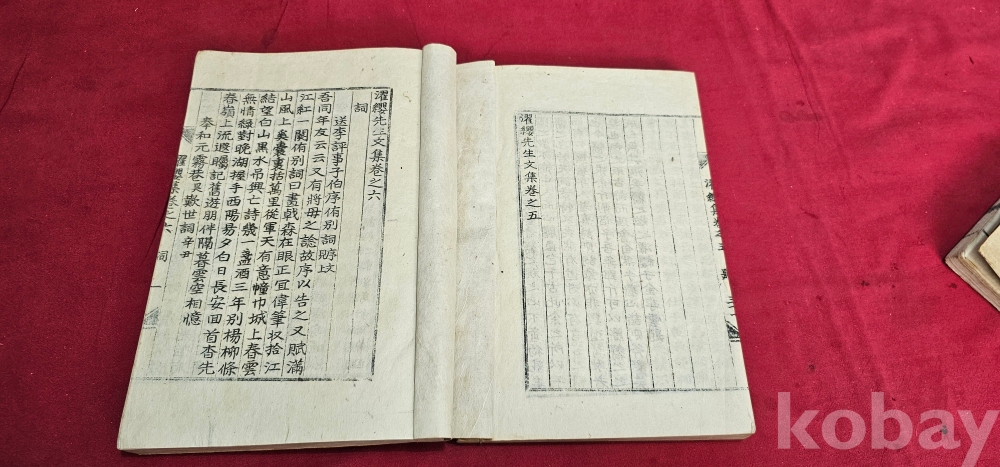 濯纓先生文集卷之五
濯纓集卷之五
濯纓先生文集卷之六
詞
送李評事子伯序侑別詞賸文
吾同年友云云又有將母之諗故序以告之又賦滿
江紅一闋侑別詞曰畫戟森在眼正宜偉筆収拾江
山風上奚囊裏括萬里從軍天有意幢巾城上春雲
結望白山黑水吊興亡詩幾一盞酒三年別楊柳條
無情綠對晩湖探手西陽易夕白日長安回首杳先
春嶺上流遐矚記舊遊朋伴隔暮雲空相憶
奉和元霧巷異歎世詞辛尹
濯纓集卷之六 詞 一
kobay